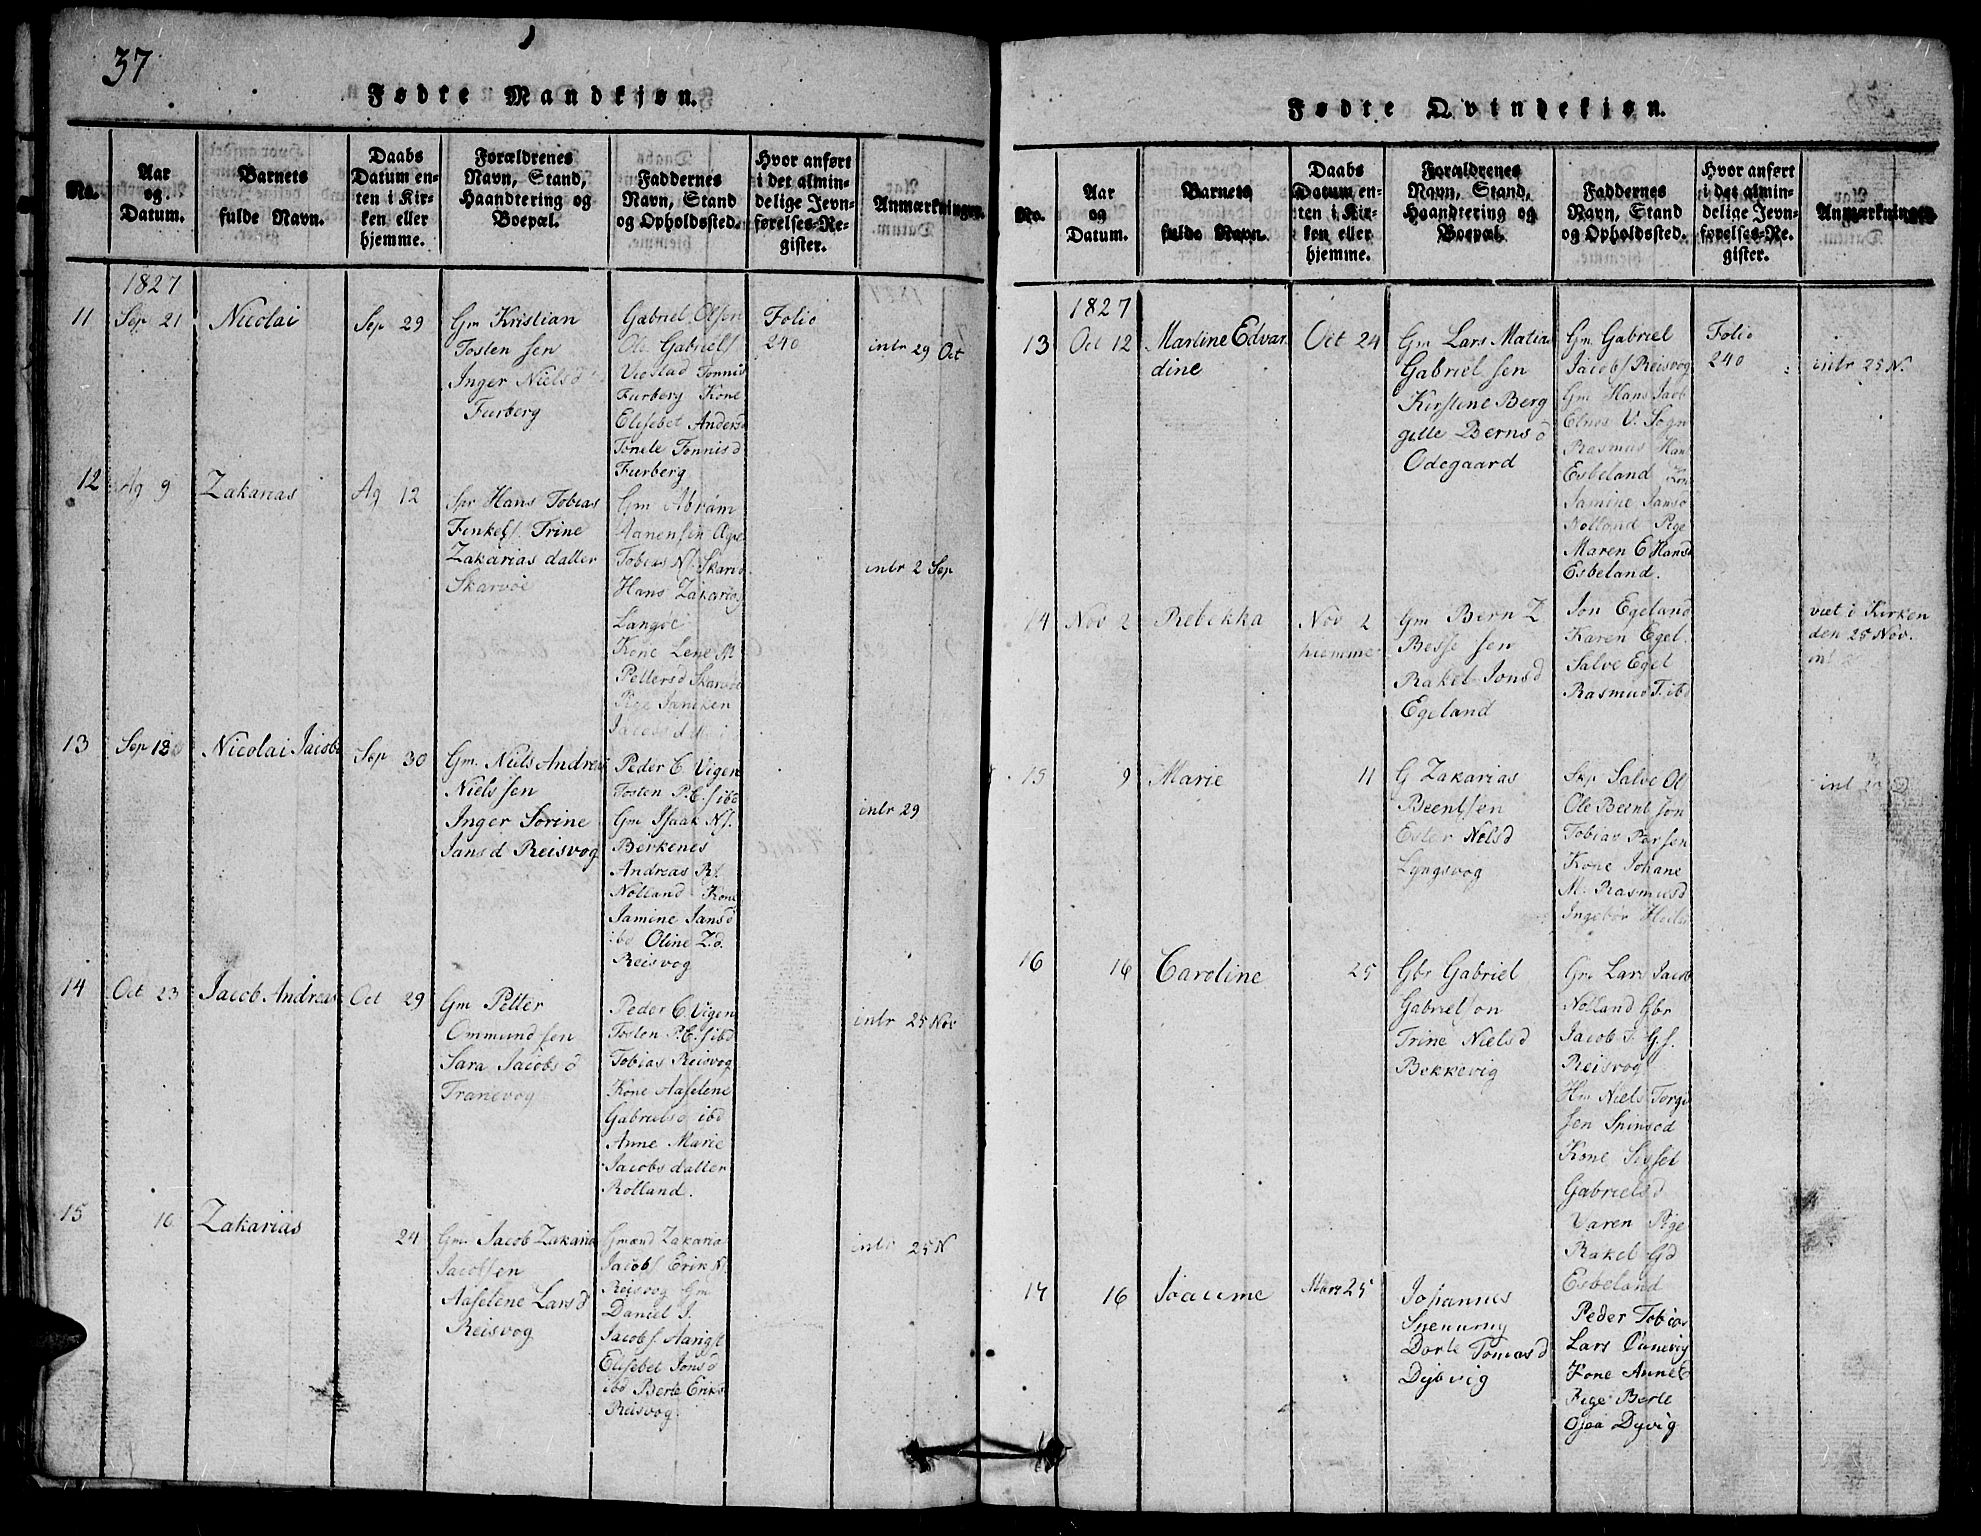 37
Fødte Mandkjøn.
No.
Aar
og
Datum.
Barnets
fulde Navn.
Daabs
Datum en-
ten i Kir-
ken eller
hjemme.
Forældrenes
Navn, Stand,
Haandtering og
Boepæl.
Faddernes
Navn, Stand
og Opholdssted.
Hvor anført
i det almin-
delige Jevn-
førelses-Re-
gister.
Anmærkninger.
1827
11
Sep 21
Nicolai
Sep 29
Gm Kristian
Tosten sen
Inger Niels d
Furberg
Gabriel Olsen
Ole Gabriels
Tonnis
Furberg Kone
Elisebet Anders
Tonnis d
Furberg
Folio
240
intr 29 Oct
12
Ag 9
Zakarias
Ag 12
Spr Hans Tobias
Trine
Zakarias datter
Skarvøe
Gm Abram
Aanensen
Tobias N
Hans Zakarias
Langøe
Kone Lene M
Petters d Skarvøe
Pige Janiken
intr 2 Sep
13
Sep
Nicolai Jacob
Sep 30
Gm. Niels Andreas
Nielssen
Inger Sorine
Jans d Reisvog
Peder C. Vigen
Tosten P. C. s ibd
Gm Isaak Ns.
Berkenes
Andreas Rs.
Nolland Kone
Jamine Jans d
ibd Oline Z. d.
Reisvog
intr 29
14
Oct 23
Jacob Andreas
Oct 29
Gm Petter
Ommund sen
Sara Jacobs d
Tranevog
Peder C. Vigen
Tosten P. C. s ibd
Tobias Reisvog
Kone Aaselene
Gabriels d ibd
Anne Marie
Jacobs datter
Rolland.
intr 25 Nov
15
16
Zakarias
24
Gm Jacob Zakaria
Jacobsen
Aaselene Lars d
Reisvog
Gmand Zakarias
Jacobs Erik N.
Reisvog Gm
Daniel J.
Jacobs
Elisebet Jons d
ibd Berte Eriks
Reisvog
intr 25 N
Fødte Qvindekjøn.
No.
Aar
og
Datum.
Barnets
fulde Navn.
Daabs
Datum en-
ten i Kir-
ken eller
hjemme.
Forældrenes
Navn, Stand,
Haandtering og
Boepæl.
Faddernes
Navn, Stand
og Opholdssted.
Hvor anført
i det almin-
delige Jevn-
førelses-Re-
gister.
Anmærkninger.
1827
13
Oct 12
Martine Edvar
dine
Oct 24
Gm Lars Matias
Gabriel sen
Kirstine Berg
gitte Berns d
Odegaard
Gm Gabriel
Jacobs Reisvog
Gm Hans Jacob
V. Sogn
Rasmus Han
Esbeland
Jamine Jans d
Nolland Pige
Maren E Hans
Esbeland.
Folio
240
intr 25 N.
14
Nov 2
Rebekka
Nov 2
hiemme
Gm Bern Z
Besse sen
Rakel Jons d
Egeland
Jon Egeland
Karen Egel
Salve Egel
Rasmus T. ibd
væt i Kirken
den 25 Nov.
15
9
Marie
11
G Zakarias
Beentsen
Ester Nels d
Lyngsvog
Skp Salve Ol
Ole Beent sen
Tobias Persen
Kone Johane
M. Rasmus d
Ingebor
16
16
Caroline
25
Gbr Gabriel
Gabriel son
Trine Niels d
Bekkevig
Gm Lars Jacob
Nolland Gbr
Jacob T. G s.
Reisvog
Hm Niels Torge
sen Spinsod
Kone Sisset
Gabriels d
Varen Pige
Rakel G d
Esbeland
17
16
Marz 25
Johannes
Dorte Tomas d
Dybvig
Peder Tobias
Lars
Kone Anne
Pige Berte
Dyvig